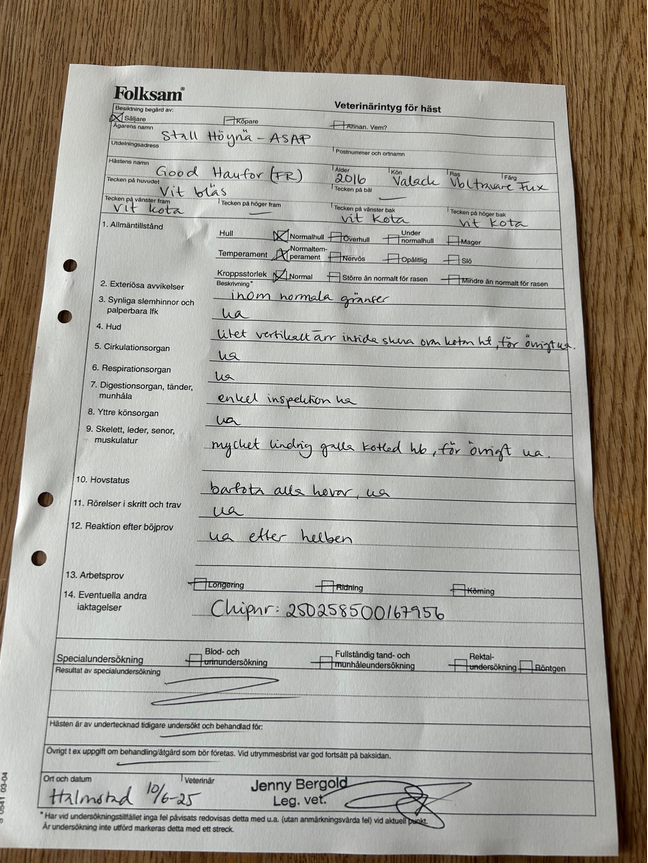 Folksam®
Veterinärintyg för häst
Besiktning begärd av:
Säljare Köpare Annan. Vem?
Ägarens namn Stall Höynä - ASAP
Utdelningsadress Postnummer och ortnamn
Hästens namn Good Haufor (FR) Ålder 2016 Kön Valack Ras Vbltravare Färg Fux
Tecken på huvudet Vit bläs Tecken på bål
Tecken på vänster fram Vit kota Tecken på höger fram Tecken på vänster bak vit kota Tecken på höger bak vit kota
1. Allmäntillstånd Hull Normalhull Överhull Under normalhull Mager
Temperament Normaltemperament Nervös Opålitlig Slö
Kroppsstorlek Normal Större än normalt för rasen Mindre än normalt för rasen
2. Exteriösa avvikelser Beskrivning* inom normala gränser
3. Synliga slemhinnor och palperbara lfk ua
4. Hud litet vertikalt ärr insida skena ovan kotan hf, för övrigt ua.
5. Cirkulationsorgan ua
6. Respirationsorgan ua
7. Digestionsorgan, tänder, munhåla enkel inspektion ua
8. Yttre könsorgan ua
9. Skelett, leder, senor, muskulatur mycket lindrig galla kotled hb, för övrigt ua.
10. Hovstatus barfota alla hovar, ua
11. Rörelser i skritt och trav ua
12. Reaktion efter böjprov ua efter helben
13. Arbetsprov Longering Ridning Körning
14. Eventuella andra iaktagelser Chipnr: 250258500167956
Specialundersökning Blod- och urinundersökning Fullständig tand- och munhåleundersökning Rektalundersökning Röntgen
Resultat av specialundersökning
Hästen är av undertecknad tidigare undersökt och behandlad för:
Övrigt t ex uppgift om behandling/åtgärd som bör företas. Vid utrymmesbrist var god fortsätt på baksidan.
Ort och datum Halmstad 10/6-25 Veterinär Jenny Bergold
Leg. vet.
* Har vid undersökningstillfället inga fel påvisats redovisas detta med u.a. (utan anmärkningsvärda fel) vid aktuell punkt.
Är undersökning inte utförd markeras detta med ett streck.
0541 03-04